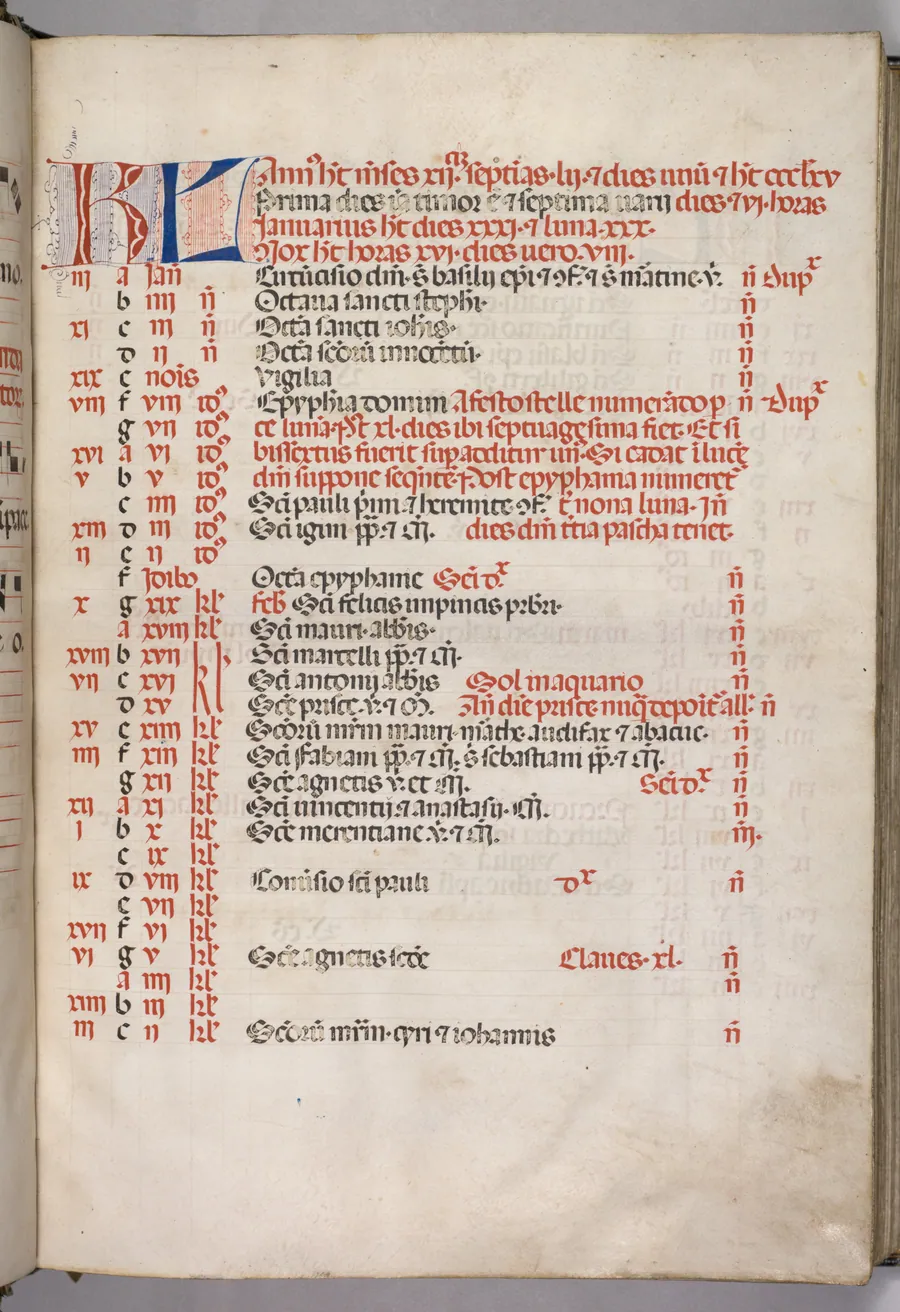 KL Annꝰ hēt mēses xij. septīas. lij. ⁊ dies unū ⁊ hēt ccclxv
Prima dies timor ē ⁊ septima uani dies ⁊ vj. horas
Januarius hēt dies xxxi. ⁊ luna. xxx.
Nox hēt horas xvi. dies uero. viii.
iij a Jan Circūcisio dn̄i. s̄ basilij ep̄i ⁊ ɔf. ⁊ s̄ martine. v̄. n̄ Dupx
b iiij n̄ Octaua sancti steph̄i. n̄
xi c iij n̄ Octā sancti ioh̄is. n̄
d ii n̄ Octā scōrū innocētū. n̄
xix e nois Vigilia n̄
viii f viii idꝰ Epyphia domini A festo stelle numerādo p n̄ Dupx
g vii idꝰ te lunā. Pꝰt xl. dies ibi septuagesima fiet. Et si
xvi a vi idꝰ bissextus fuerit supadditur un̄. Si cadat ī luce
v b v idꝰ dn̄i suppone seqn̄te. Post epyphania numeret
c iiij idꝰ Sc̄i pauli p̄mi ⁊ heremite ɔf. t̄ nona luna. Jn̄
xiii d iij idꝰ Sc̄i igini pp̄. ⁊ m̄. dies dn̄i t̄tia pascha tenet.
ii e ii idꝰ
f Idibꝰ Octā epyphanie Sc̄i dx n̄
x g xix kl̄ feb̄ Sc̄i felicis inpincis pr̄bri. n̄
a xviii kl̄ Sc̄i mauri. abb̄is. n̄
xviii b xvii kl̄ Sc̄i marcelli pp̄. ⁊ m̄. n̄
vii c xvi Sc̄i antonij abb̄is Sol in aquario n̄
d xv Sc̄e prisce. v̄. ⁊ m̄. In die prisce nūq̄ depoīt̄ all̄. n̄
xv e xiiii kl̄ Scōrū mr̄m mauri. māthe. audifax ⁊ abacuc. n̄
iiii f xiii kl̄ Sc̄i fabiani pp̄. ⁊ m̄. s̄ sebastiani pp̄. ⁊ m̄. n̄
g xii kl̄ Sc̄e agnetis v̄. et m̄. Sc̄i dx n̄
xii a xi kl̄ Sc̄i uincentij ⁊ anastasij. m̄. n̄
i b x kl̄ Sc̄e merentiane v̄. ⁊ m̄. iij.
c ix kl̄
ix d viii kl̄ Conūsio sc̄i pauli dx n̄
e vii kl̄
xvii f vi kl̄
vi g v kl̄ Sc̄e agnetis sc̄dе Claues. xl. n̄
a iiii kl̄ n̄
xiiii b iij kl̄
iij c ii kl̄ Scōrū mr̄m. cyri ⁊ iohannis n̄